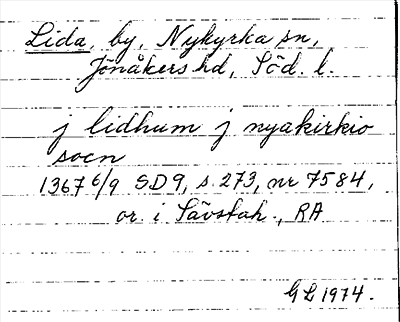 Lida, by, Nykyrka sn,
Jönåkers hd, Söd. l.
j lidhum j nyakirkio
socn
1367 6/9 SD 9, s. 273, nr 7584,
or. i Sävstah., RA
GL 1974.